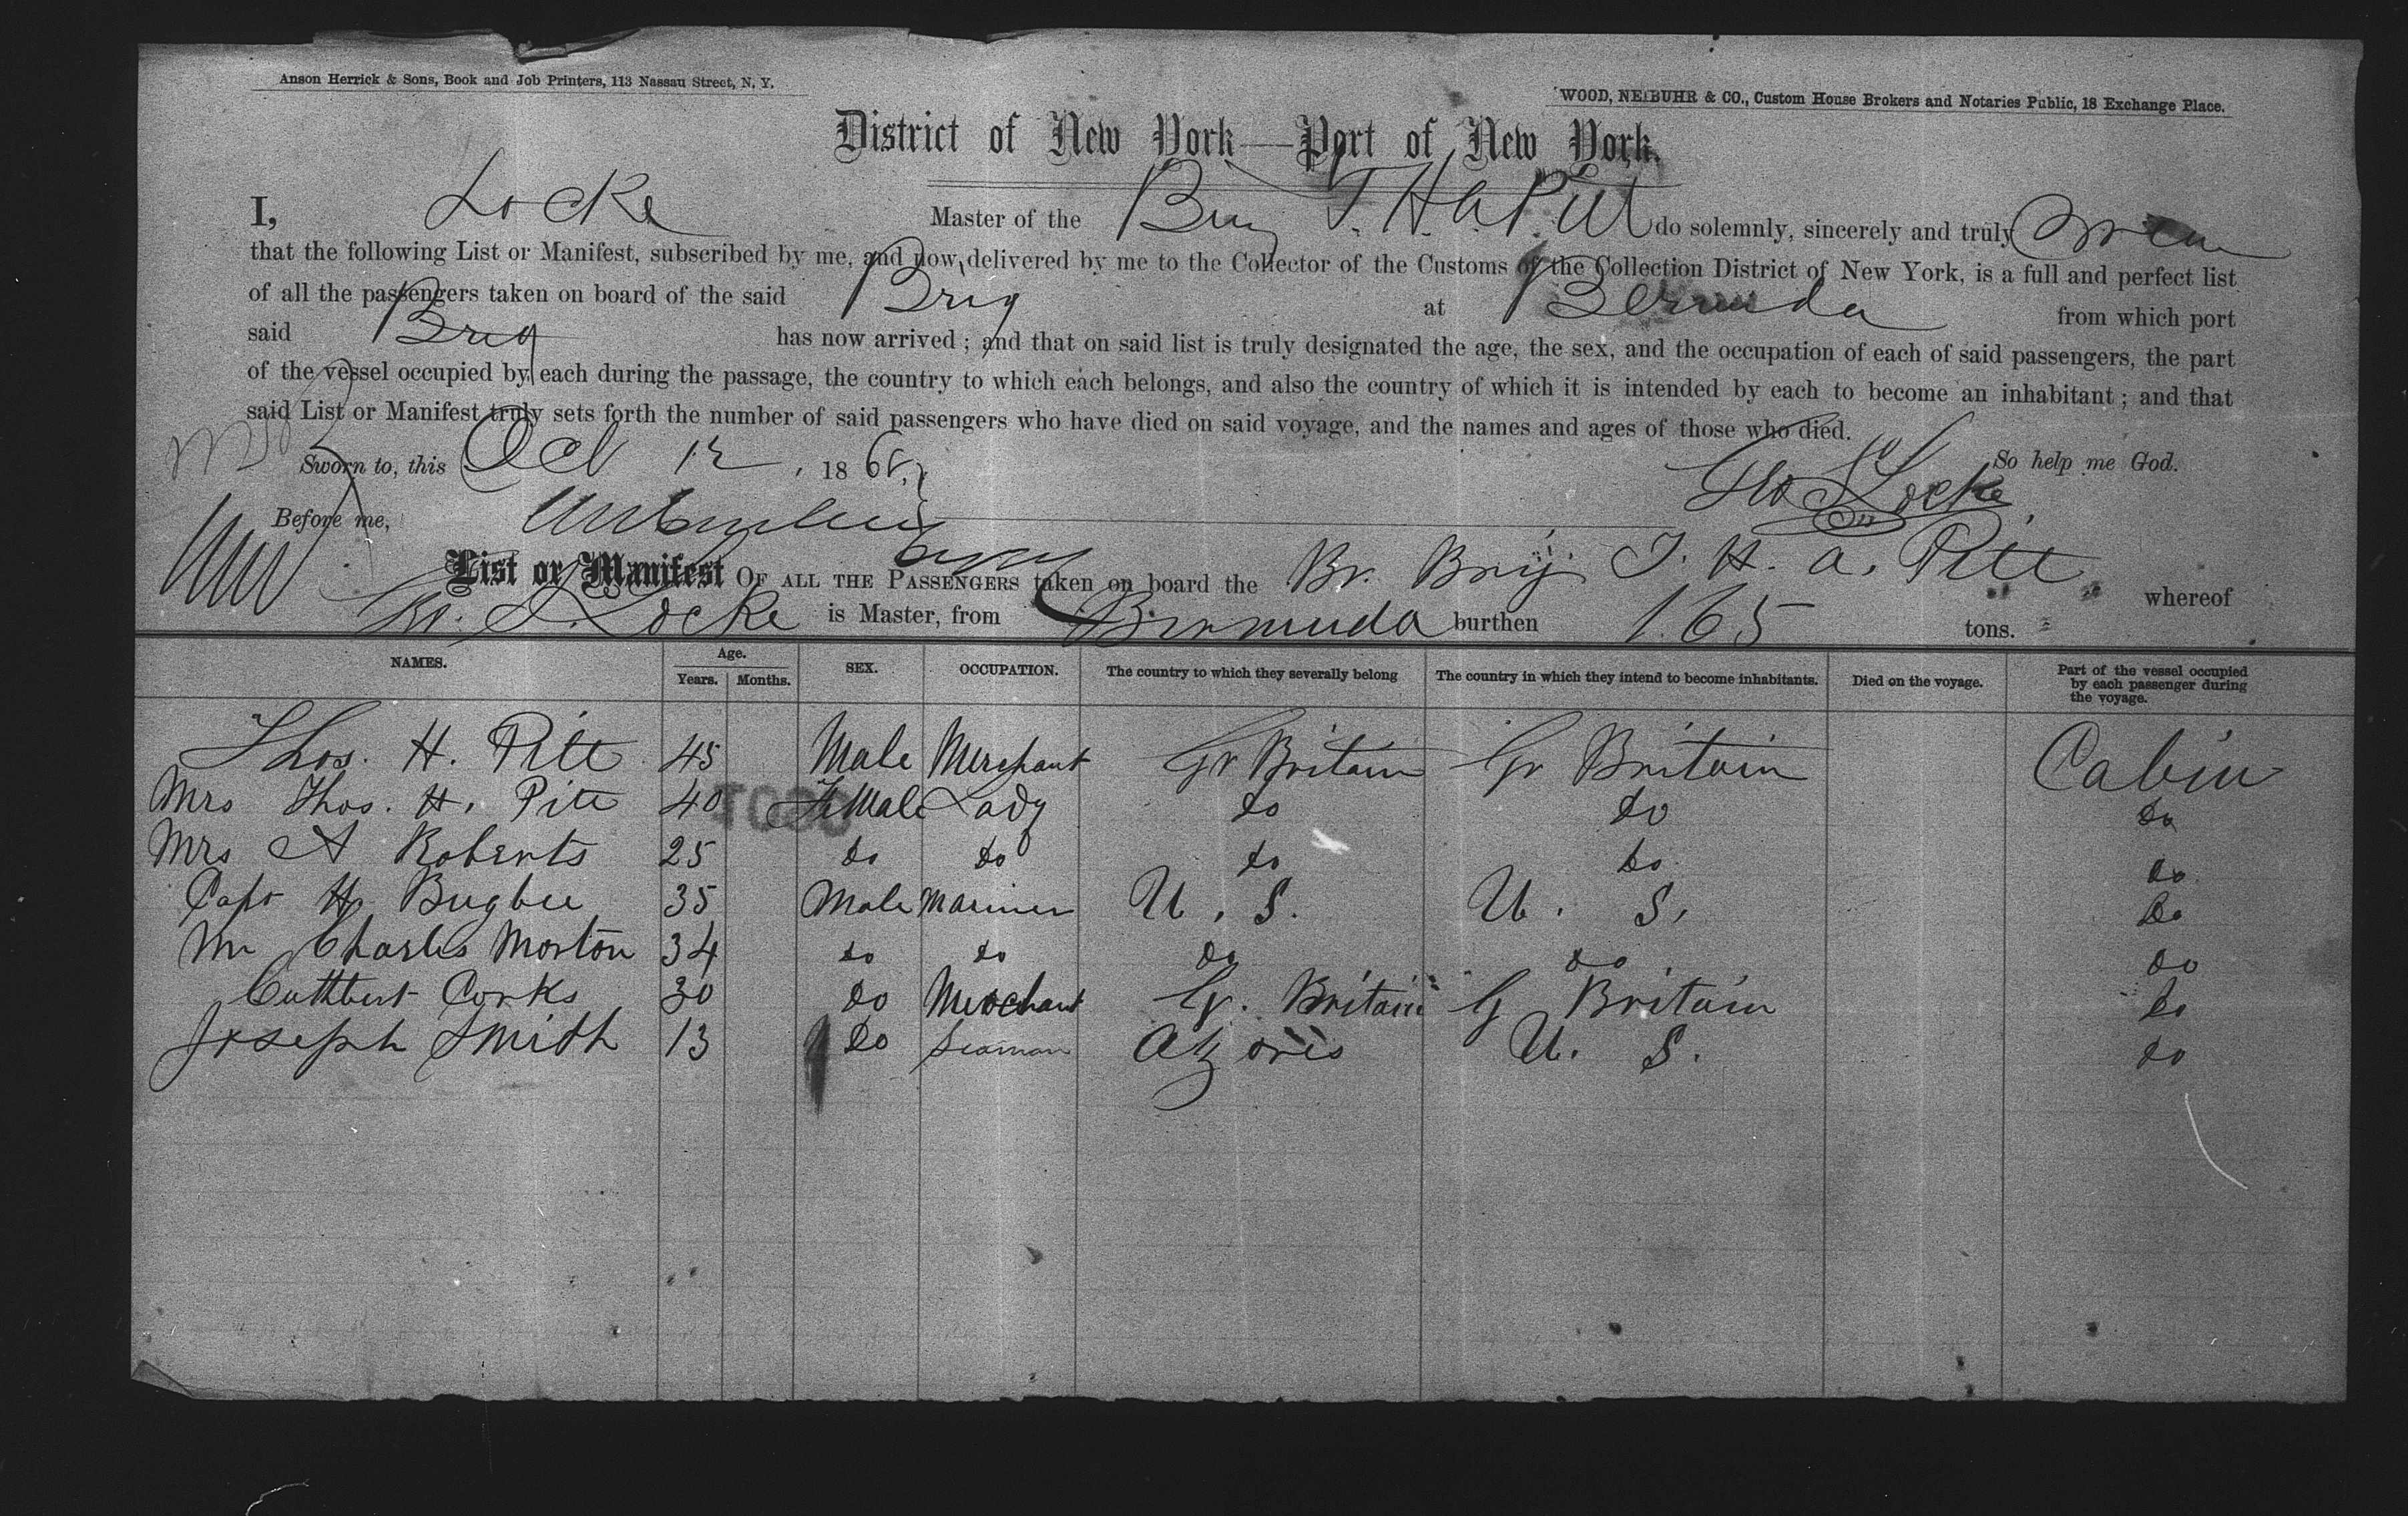 Anson Herrick & Sons, Book and Job Printers, 113 Nassau Street, N. Y.
WOOD, NEIBUHR & CO., Custom House Brokers and Notaries Public, 18 Exchange Place.
District of New York—Port of New York.
I, Locke Master of the Brig T. H. A. Pitt do solemnly, sincerely and truly swear
that the following List or Manifest, subscribed by me, and now delivered by me to the Collector of the Customs of the Collection District of New York, is a full and perfect list
of all the passengers taken on board of the said Brig at Bermuda from which port
said Brig has now arrived ; and that on said list is truly designated the age, the sex, and the occupation of each of said passengers, the part
of the vessel occupied by each during the passage, the country to which each belongs, and also the country of which it is intended by each to become an inhabitant ; and that
said List or Manifest truly sets forth the number of said passengers who have died on said voyage, and the names and ages of those who died.
Sworn to, this Oct 12, 186 So help me God.
Before me, Locke
List or Manifest OF ALL THE PASSENGERS taken on board the Br. Brig T. H. A. Pitt whereof
Locke is Master, from Bermuda burthen 165 tons.
NAMES. Age. Years. Months. SEX. OCCUPATION. The country to which they severally belong The country in which they intend to become inhabitants. Died on the voyage. Part of the vessel occupied by each passenger during the voyage.
Thos. H. Pitt 45 Male Merchant Gr Britain Gr Britain Cabin
Mrs Thos. H. Pitt 40 Female Lady do do do
Mrs A Roberts 25 do do do do do
Capt H. Bugbee 35 Male Mariner U. S. U. S. do
Mr Charles Morton 34 do do do do do
Cuthbert Corks 30 do Merchant Gr. Britain G Britain do
Joseph Smith 13 do Seaman Azores U. S. do